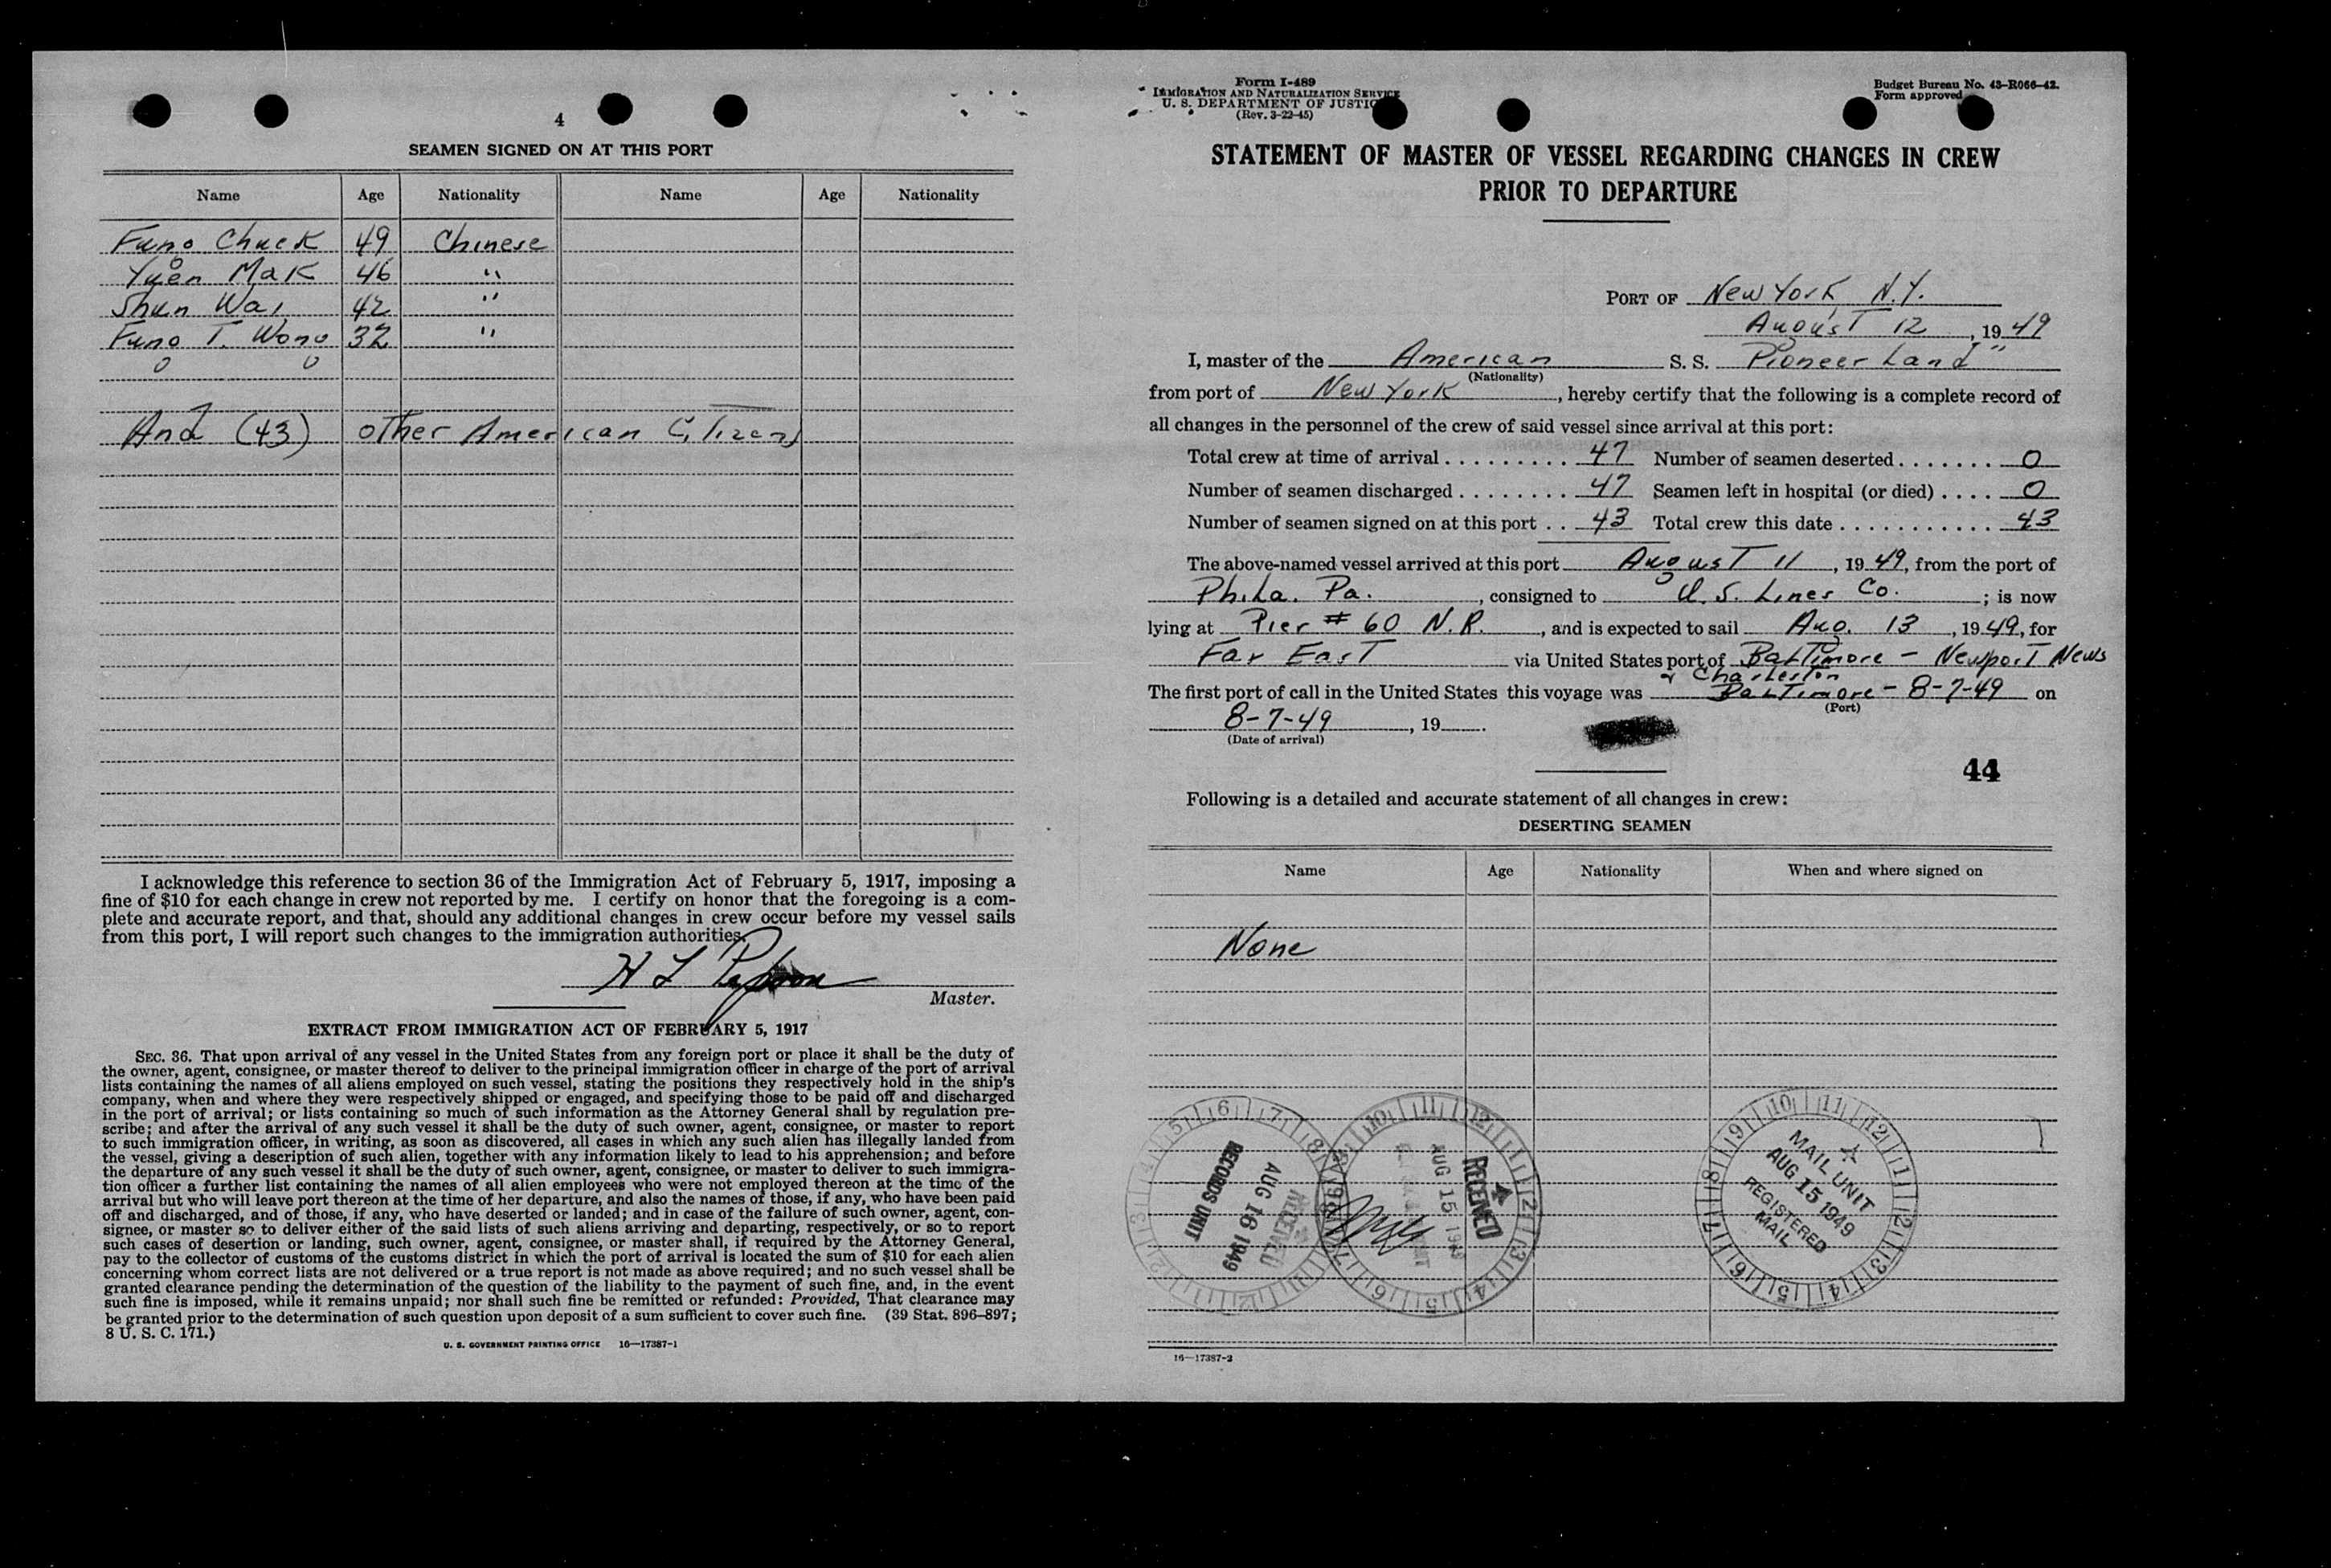 4
SEAMEN SIGNED ON AT THIS PORT
Name Age Nationality Name Age Nationality
Fung Chuck 49 Chinese
Yuen Mak 46 "
Shun Wai 42 "
Fung T. Wong 32 "
And (43) other American Citizens
I acknowledge this reference to section 36 of the Immigration Act of February 5, 1917, imposing a
fine of $10 for each change in crew not reported by me. I certify on honor that the foregoing is a com-
plete and accurate report, and that, should any additional changes in crew occur before my vessel sails
from this port, I will report such changes to the immigration authorities.
H L
Master.
EXTRACT FROM IMMIGRATION ACT OF FEBRUARY 5, 1917
SEC. 36. That upon arrival of any vessel in the United States from any foreign port or place it shall be the duty of
the owner, agent, consignee, or master thereof to deliver to the principal immigration officer in charge of the port of arrival
lists containing the names of all aliens employed on such vessel, stating the positions they respectively hold in the ship's
company, when and where they were respectively shipped or engaged, and specifying those to be paid off and discharged
in the port of arrival; or lists containing so much of such information as the Attorney General shall by regulation pre-
scribe; and after the arrival of any such vessel it shall be the duty of such owner, agent, consignee, or master to report
to such immigration officer, in writing, as soon as discovered, all cases in which any such alien has illegally landed from
the vessel, giving a description of such alien, together with any information likely to lead to his apprehension; and before
the departure of any such vessel it shall be the duty of such owner, agent, consignee, or master to deliver to such immigra-
tion officer a further list containing the names of all alien employees who were not employed thereon at the time of the
arrival but who will leave port thereon at the time of her departure, and also the names of those, if any, who have been paid
off and discharged, and of those, if any, who have deserted or landed; and in case of the failure of such owner, agent, con-
signee, or master so to deliver either of the said lists of such aliens arriving and departing, respectively, or so to report
such cases of desertion or landing, such owner, agent, consignee, or master shall, if required by the Attorney General,
pay to the collector of customs of the customs district in which the port of arrival is located the sum of $10 for each alien
concerning whom correct lists are not delivered or a true report is not made as above required; and no such vessel shall be
granted clearance pending the determination of the question of the liability to the payment of such fine, and, in the event
such fine is imposed, while it remains unpaid; nor shall such fine be remitted or refunded: Provided, That clearance may
be granted prior to the determination of such question upon deposit of a sum sufficient to cover such fine. (39 Stat. 896–897;
8 U. S. C. 171.)
U. S. GOVERNMENT PRINTING OFFICE 16—17387-1
Form I-489
IMMIGRATION AND NATURALIZATION SERVICE
U. S. DEPARTMENT OF JUSTICE
(Rev. 3-22-45)
Budget Bureau No. 43-R066-42.
Form approved
STATEMENT OF MASTER OF VESSEL REGARDING CHANGES IN CREW
PRIOR TO DEPARTURE
PORT OF New York N.Y.
August 12, 1949
I, master of the American S. S. Pioneer Land"
(Nationality)
from port of New York, hereby certify that the following is a complete record of
all changes in the personnel of the crew of said vessel since arrival at this port:
Total crew at time of arrival 47 Number of seamen deserted 0
Number of seamen discharged 47 Seamen left in hospital (or died) 0
Number of seamen signed on at this port 43 Total crew this date 43
The above-named vessel arrived at this port August 11, 1949, from the port of
Phila. Pa., consigned to U. S. Lines Co.; is now
lying at Pier # 60 N.R., and is expected to sail Aug. 13, 1949, for
Far East via United States port of Baltimore - Newport News
& Charleston
The first port of call in the United States this voyage was Baltimore - 8-7-49 on
(Port)
8-7-49, 19
(Date of arrival)
44
Following is a detailed and accurate statement of all changes in crew:
DESERTING SEAMEN
Name Age Nationality When and where signed on
None
RECORDS UNIT
AUG 16 1949
RECEIVED
RECEIVED
AUG 15
MAIL UNIT
AUG 15 1949
REGISTERED
MAIL
16—17387-2